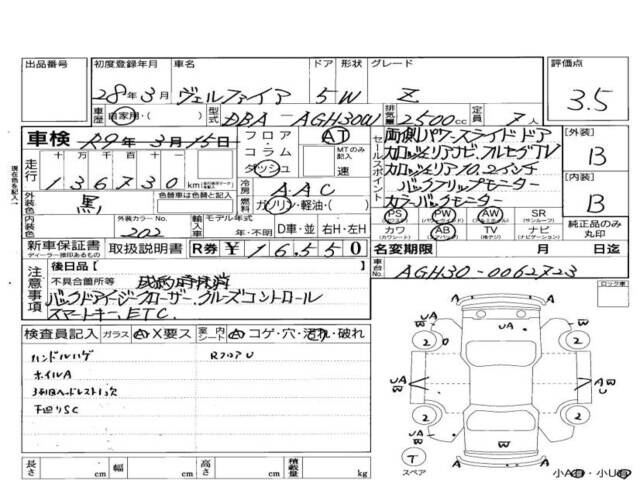 出品番号 初度登録年月 車名 ドア 形状 グレード 評価点
28年3月 ヴェルファイア 5W Z 3.5
車歴 自家用・( ) 型式 DBA-AGH30W 排気量 2500cc 定員 7人
車検 R9年3月15日 フロア・コラム・ダッシュ AT MTのみ記入 速
セールスポイント 両側パワースライドドア
カロッツェリアナビ,フルセグTV
カロッツェリア10.2インチ
バックフリップモニター
カラーバックモニター
[外装] B
[内装] B
走行 十万千百十 136730 km
冷房 AAC
外装色 黒 車替色は色替と記入 燃料 ガソリン・軽油・( )
内装色 外装カラーNo. 202 輸入車 モデル年式 年・不明 D車・並 右H・左H
PS PW AW SR
(パワステ) (パワーウィンド) (サンルーフ)
カワ AB TV ナビ
(カワシート) (エアバッグ) (ナビゲーション)
純正品のみ丸印
新車保証書 取扱説明書 R券 ¥16,550 名変期限 月 日迄
ディーラー捺印あるもの
注意事項 後日品[ ]
不具合箇所等
バックドアイージークローザー,クルーズコントロール
スマートキー,ETC.
車台No. AGH30-0062723
ロック車
検査員記入 ガラス A・X要ス 室内シート A コゲ・穴・汚れ・破れ
ハンドルハゲ RフロアU
ホイルA
3列目ヘッドレスト1欠
下廻りSC
A A
UA W
2 2
UA W A W U
2 2
UA W W
T
スペア
A A
長さ cm 幅 cm 高さ cm 積載量 kg